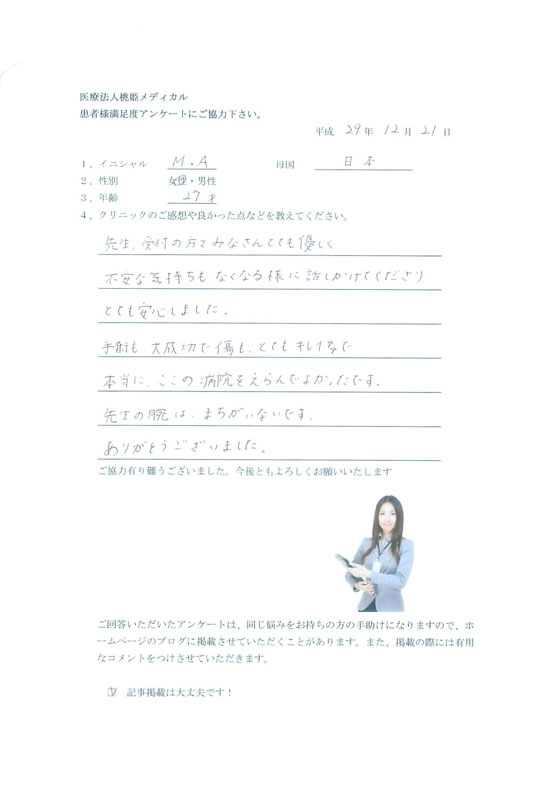 医療法人桃姫メディカル
患者様満足度アンケートにご協力下さい。
平成 29年 12月 21日
1、イニシャル M.A 母国 日本
2、性別 女性・男性
3、年齢 27才
4、クリニックのご感想や良かった点などを教えてください。
先生、受付の方とみなさんとても優しく
不安な気持ちもなくなる様に話しかけてくださり
とても安心しました。
手術も、大成功で傷も、とてもキレイなので
本当に、ここの病院をえらんでよかったです。
先生の腕は、まちがいないです。
ありがとうございました。
ご協力有り難うございました。今後ともよろしくお願いいたします
ご回答いただいたアンケートは、同じ悩みをお持ちの方の手助けになりますので、ホ
ームページのブログに掲載させていただくことがあります。また、掲載の際には有用
なコメントをつけさせていただきます。
☑ 記事掲載は大丈夫です！